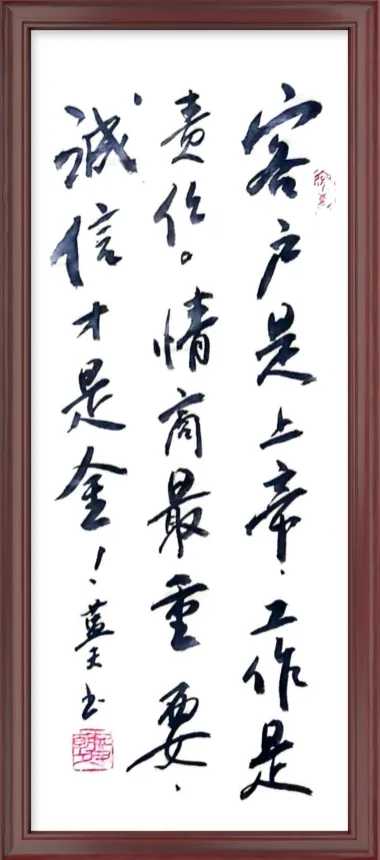 客户是上帝、工作是
责任。情商最重要、
诚信才是金！藍天书